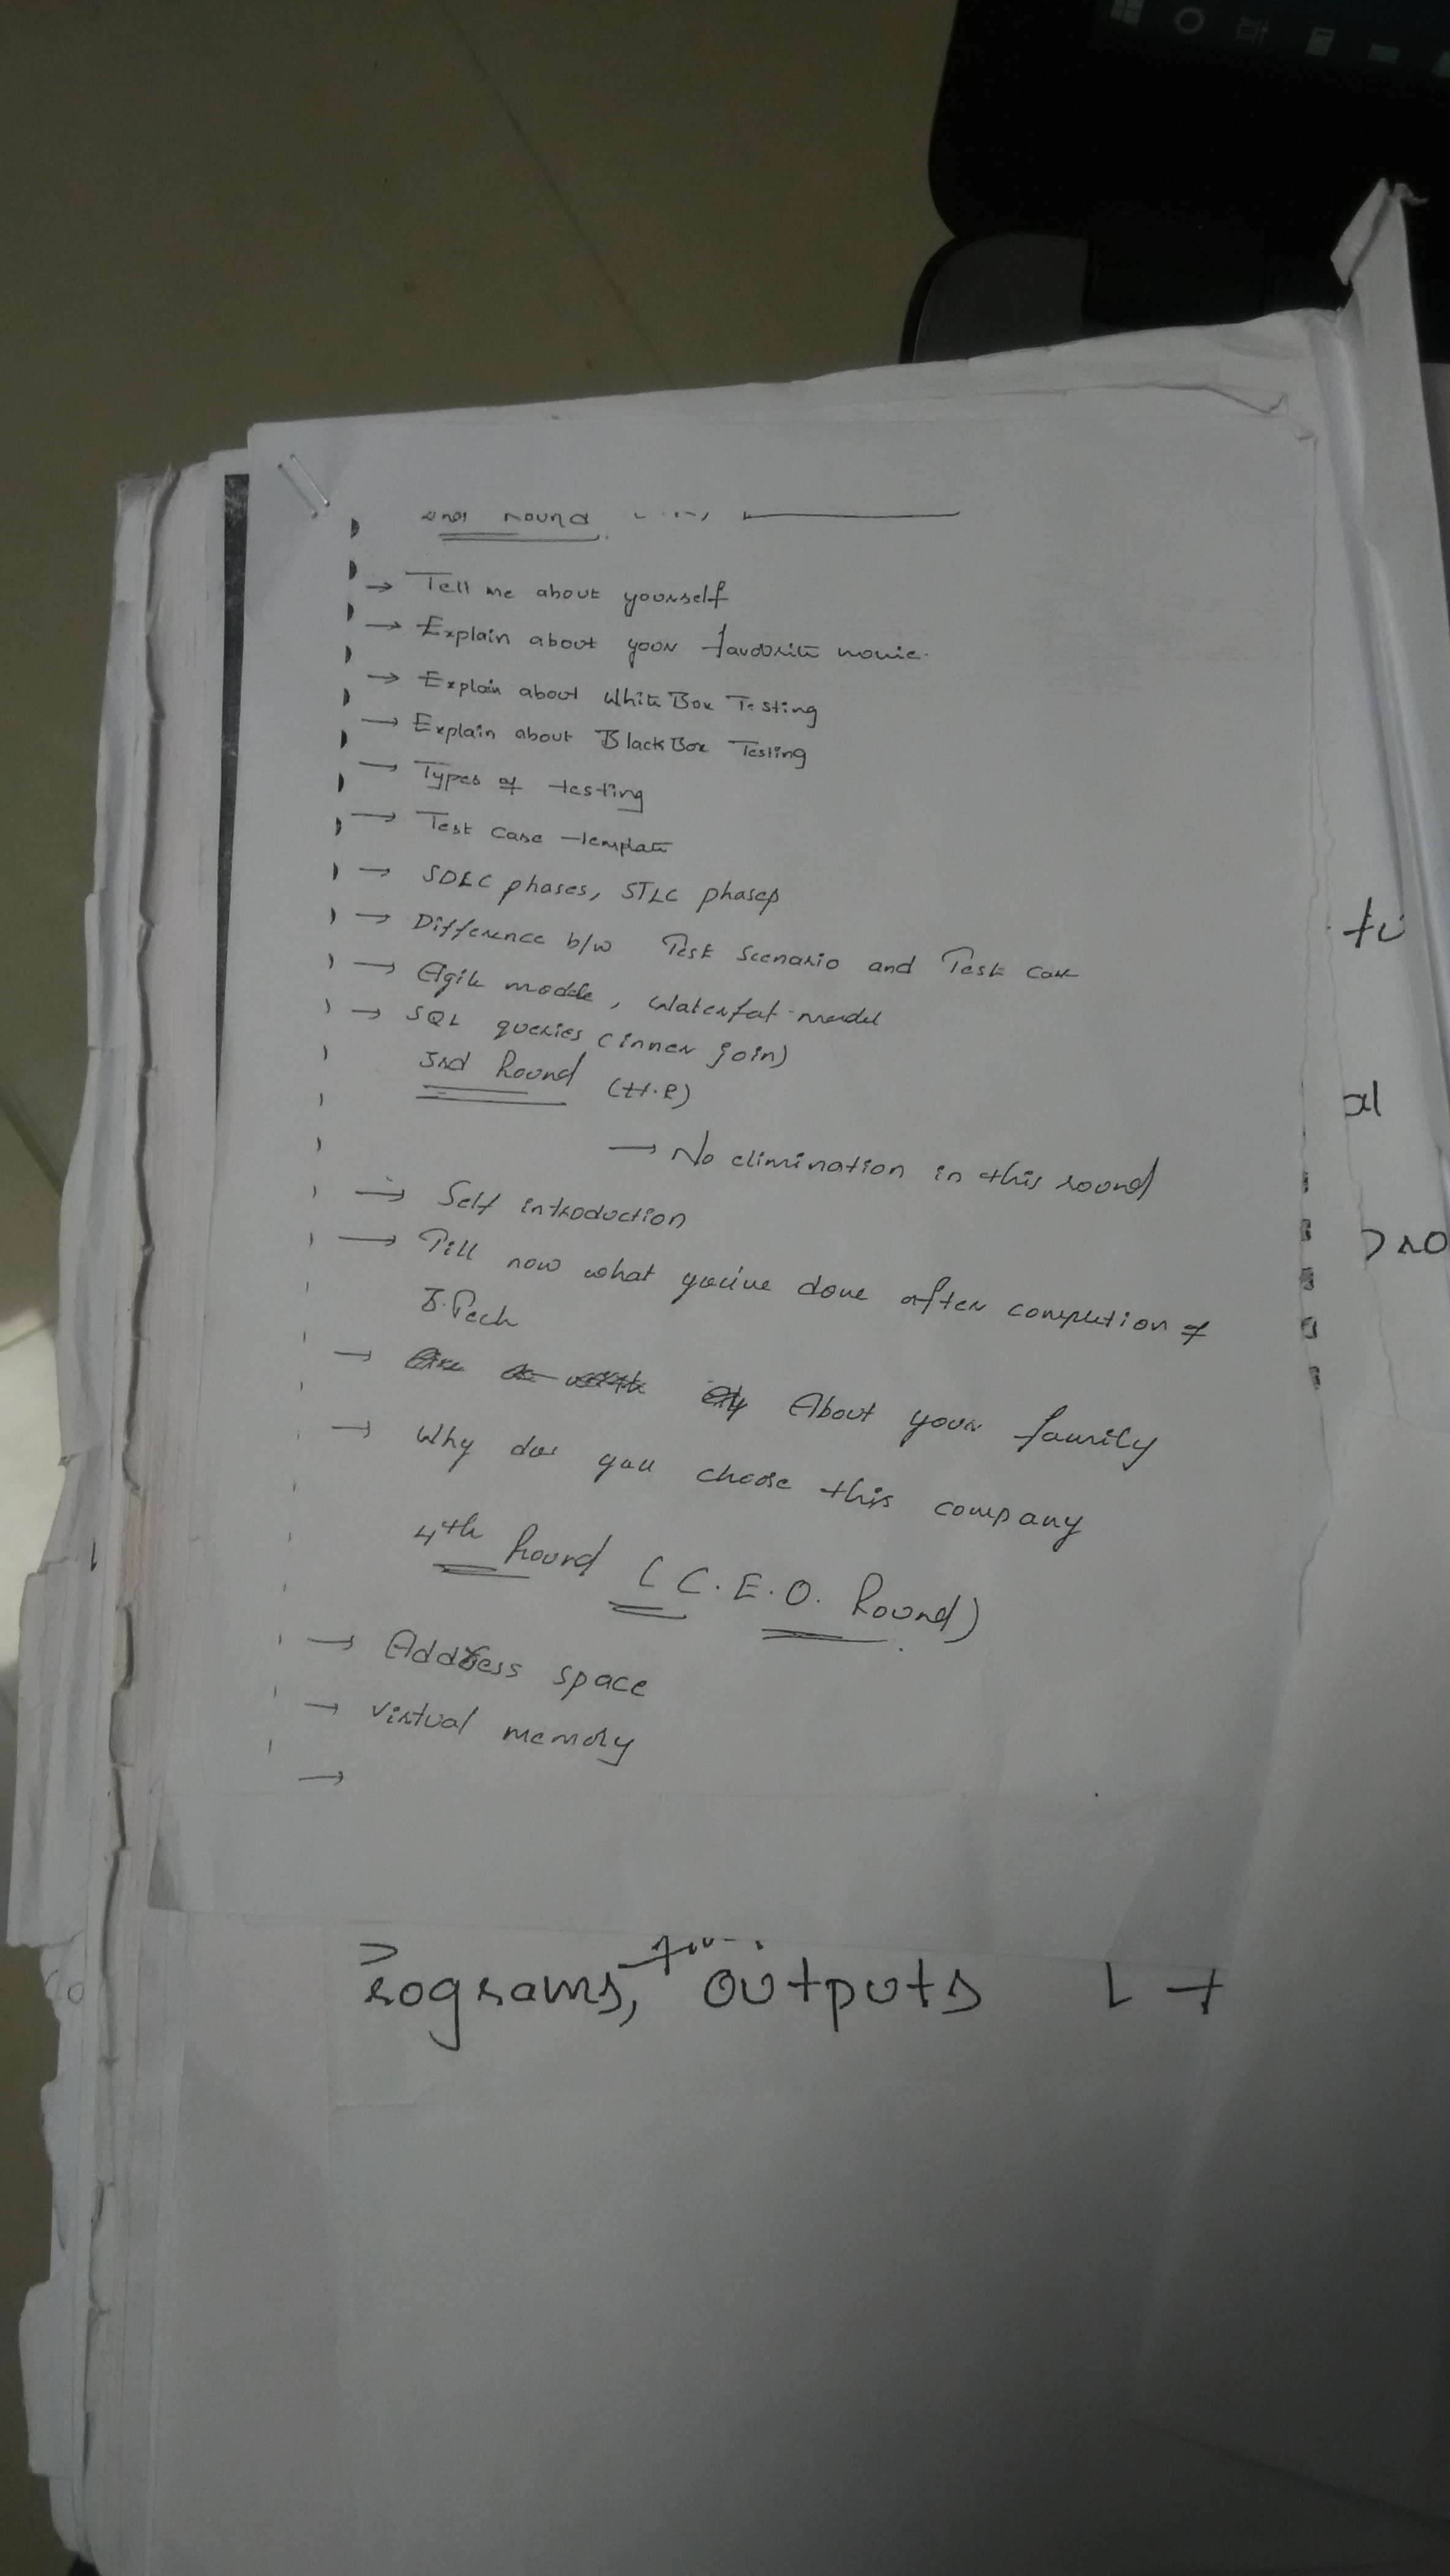 round
→ Tell me about yourself
→ Explain about your favourite movie.
→ Explain about White Box Testing
→ Explain about Black Box Testing
→ Types of testing
→ Test case template
→ SDLC phases, STLC phases
→ Difference b/w Test Scenario and Test case
→ Agile model, Waterfal model
→ SQL queries (inner join)
3rd Round (H.R)
→ No elimination in this round
→ Self introduction
→ Till now what you've done after completion of
B.Tech
→ About your family
→ Why do you choose this company
4th Round (C.E.O. Round)
→ Address space
→ Virtual memory
→
rograms, outputs